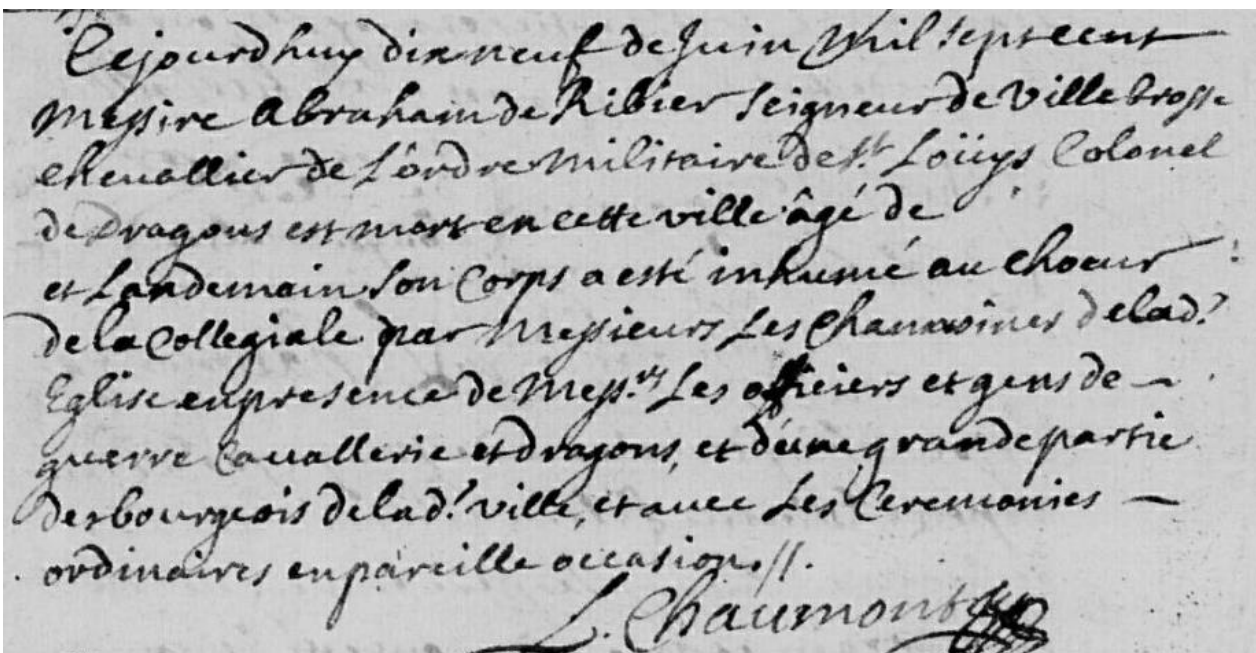 Cejourdhuy dix neuf de Juin Mil sept cent
Messire Abraham de Ribier Seigneur de Villebrosse
chevallier de L'ordre Militaire de St. Loüys Colonel
de Dragons est mort en cette ville âgé de
et Landemain son Corps a esté inhumé au Choeur
de la Collegiale par Messieurs Les Chanoines de lad.
Eglise en presence de Mess.rs Les officiers et gens de —
guerre Cavallerie et dragons, et d'une grande partie
des bourgeois de lad. ville, et avec Les Ceremonies —
ordinaires en pareille occasion. //.
L. Chaumont